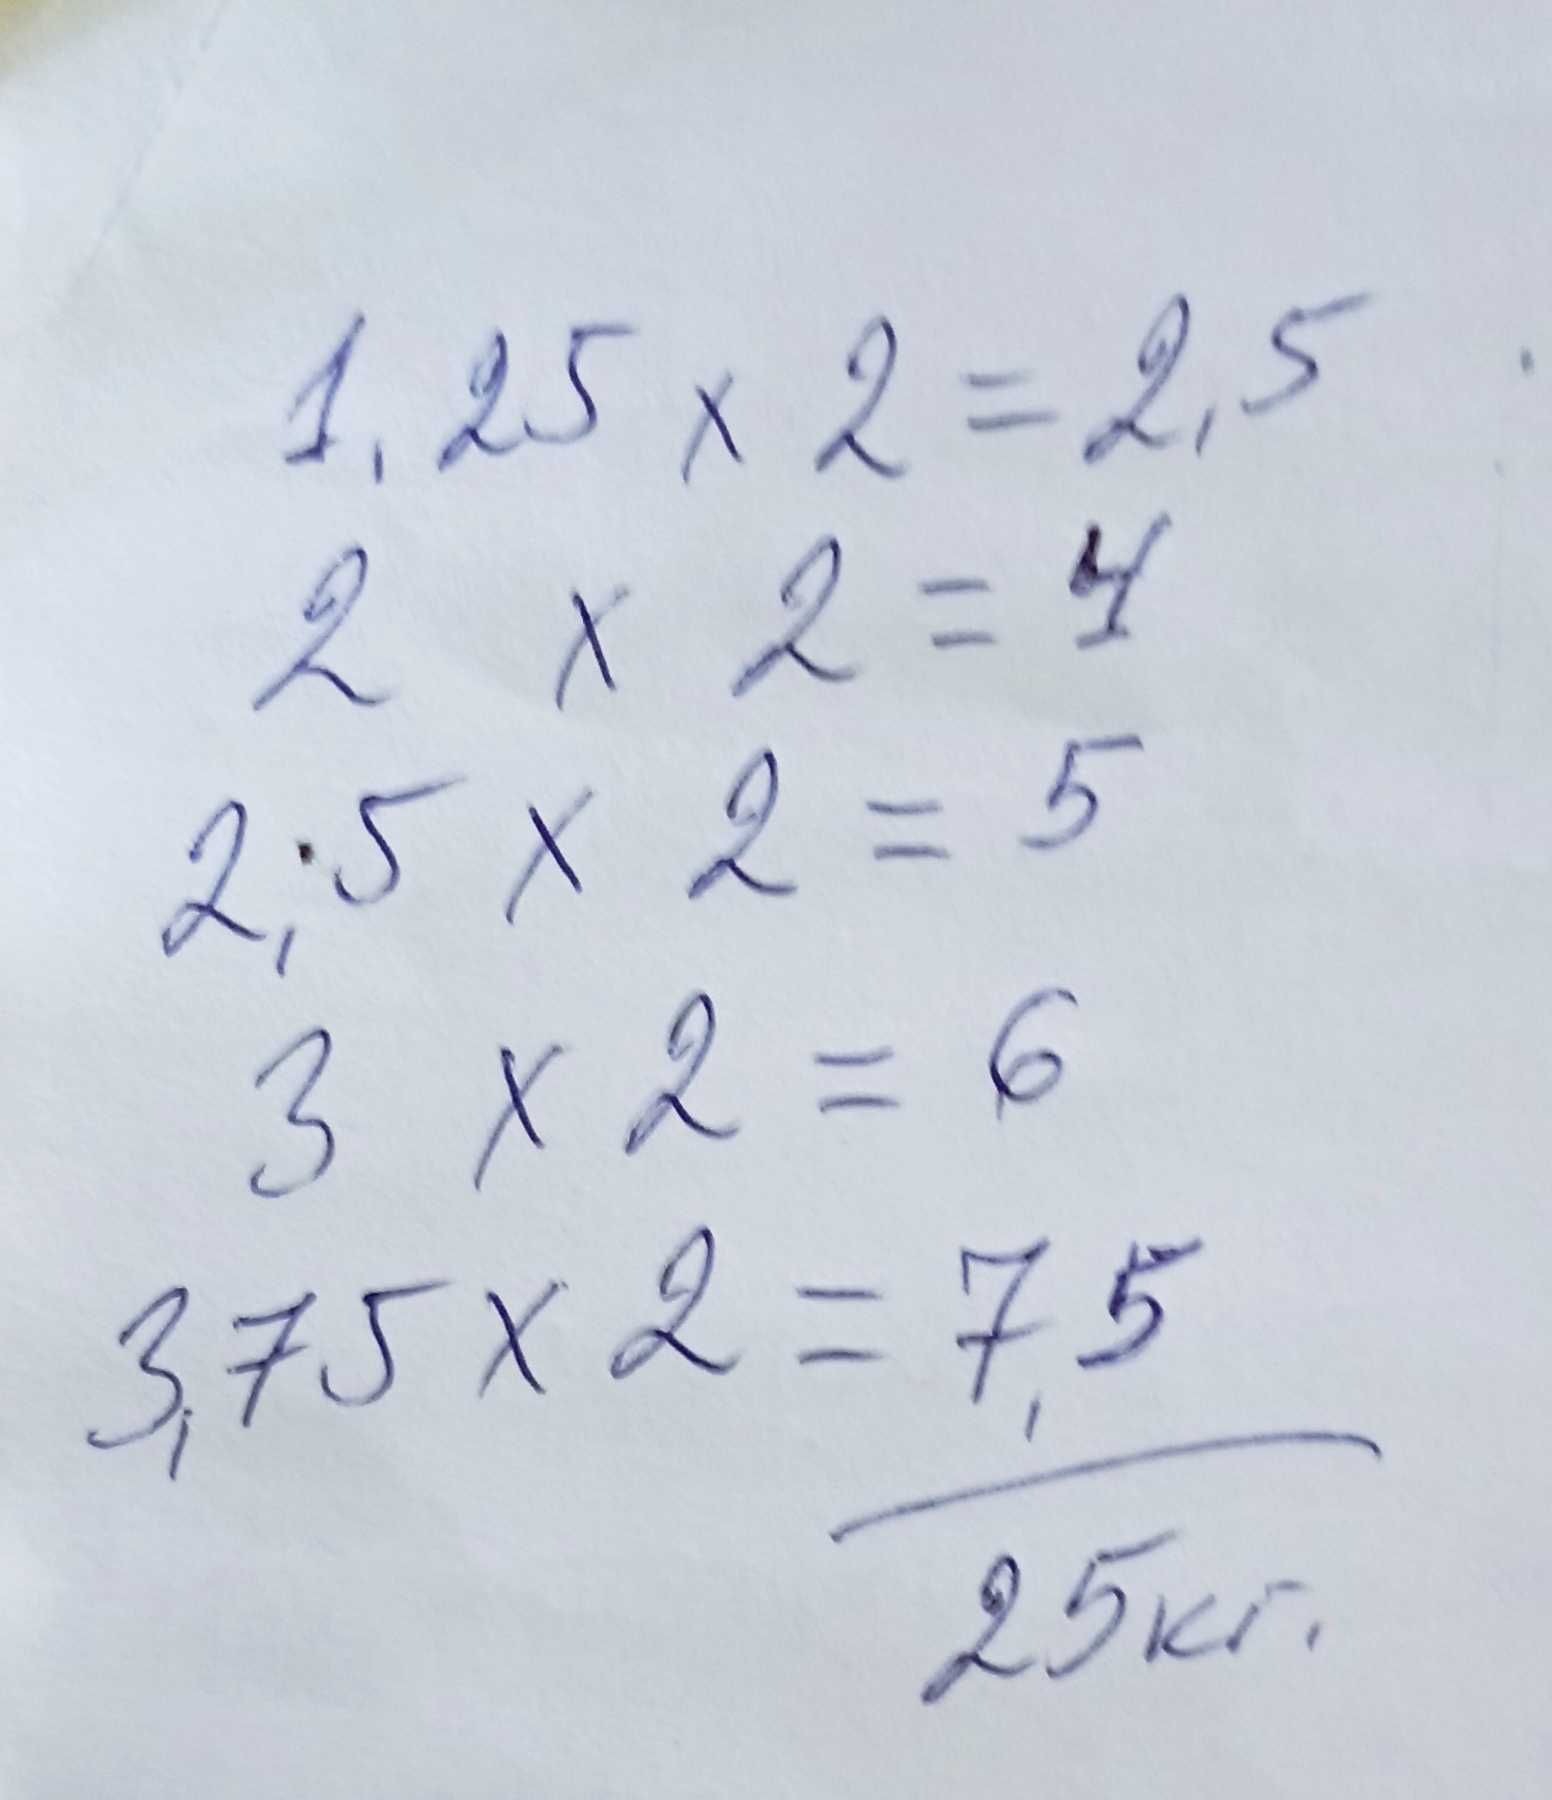 1,25 x 2 = 2,5
2 x 2 = 4
2,5 x 2 = 5
3 x 2 = 6
3,75 x 2 = 7,5
25кг.